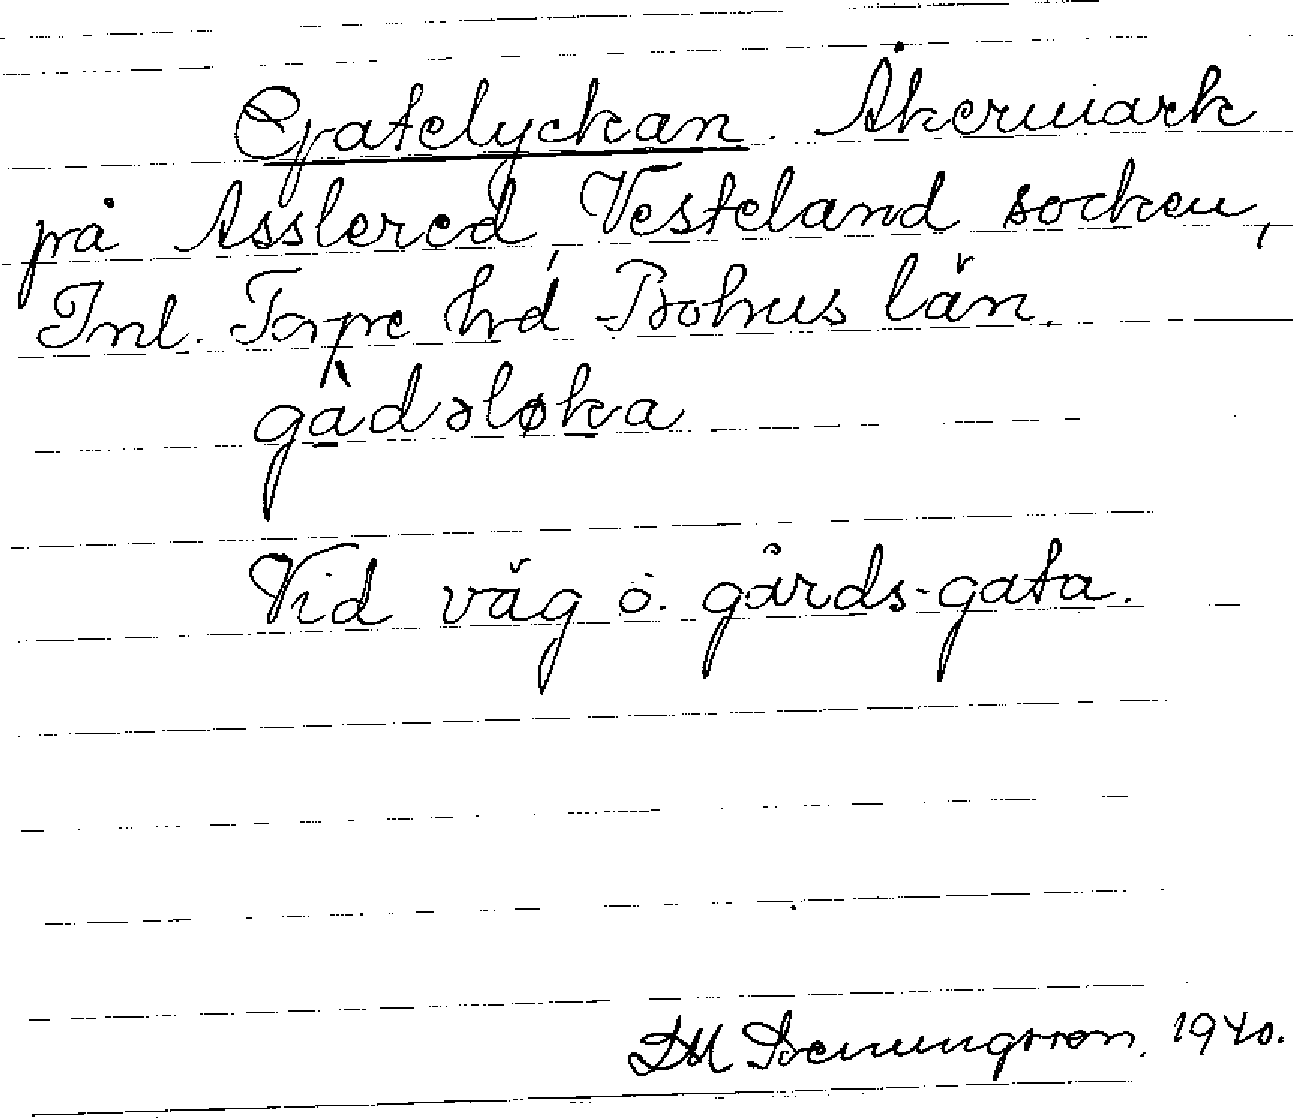 Gatelyckan. Åkermark
på Asslered, Vesteland socken,
Inl. Torpe hd, Bohus län.
gàdəløka
Vid väg o. gårds-gata.
1940.